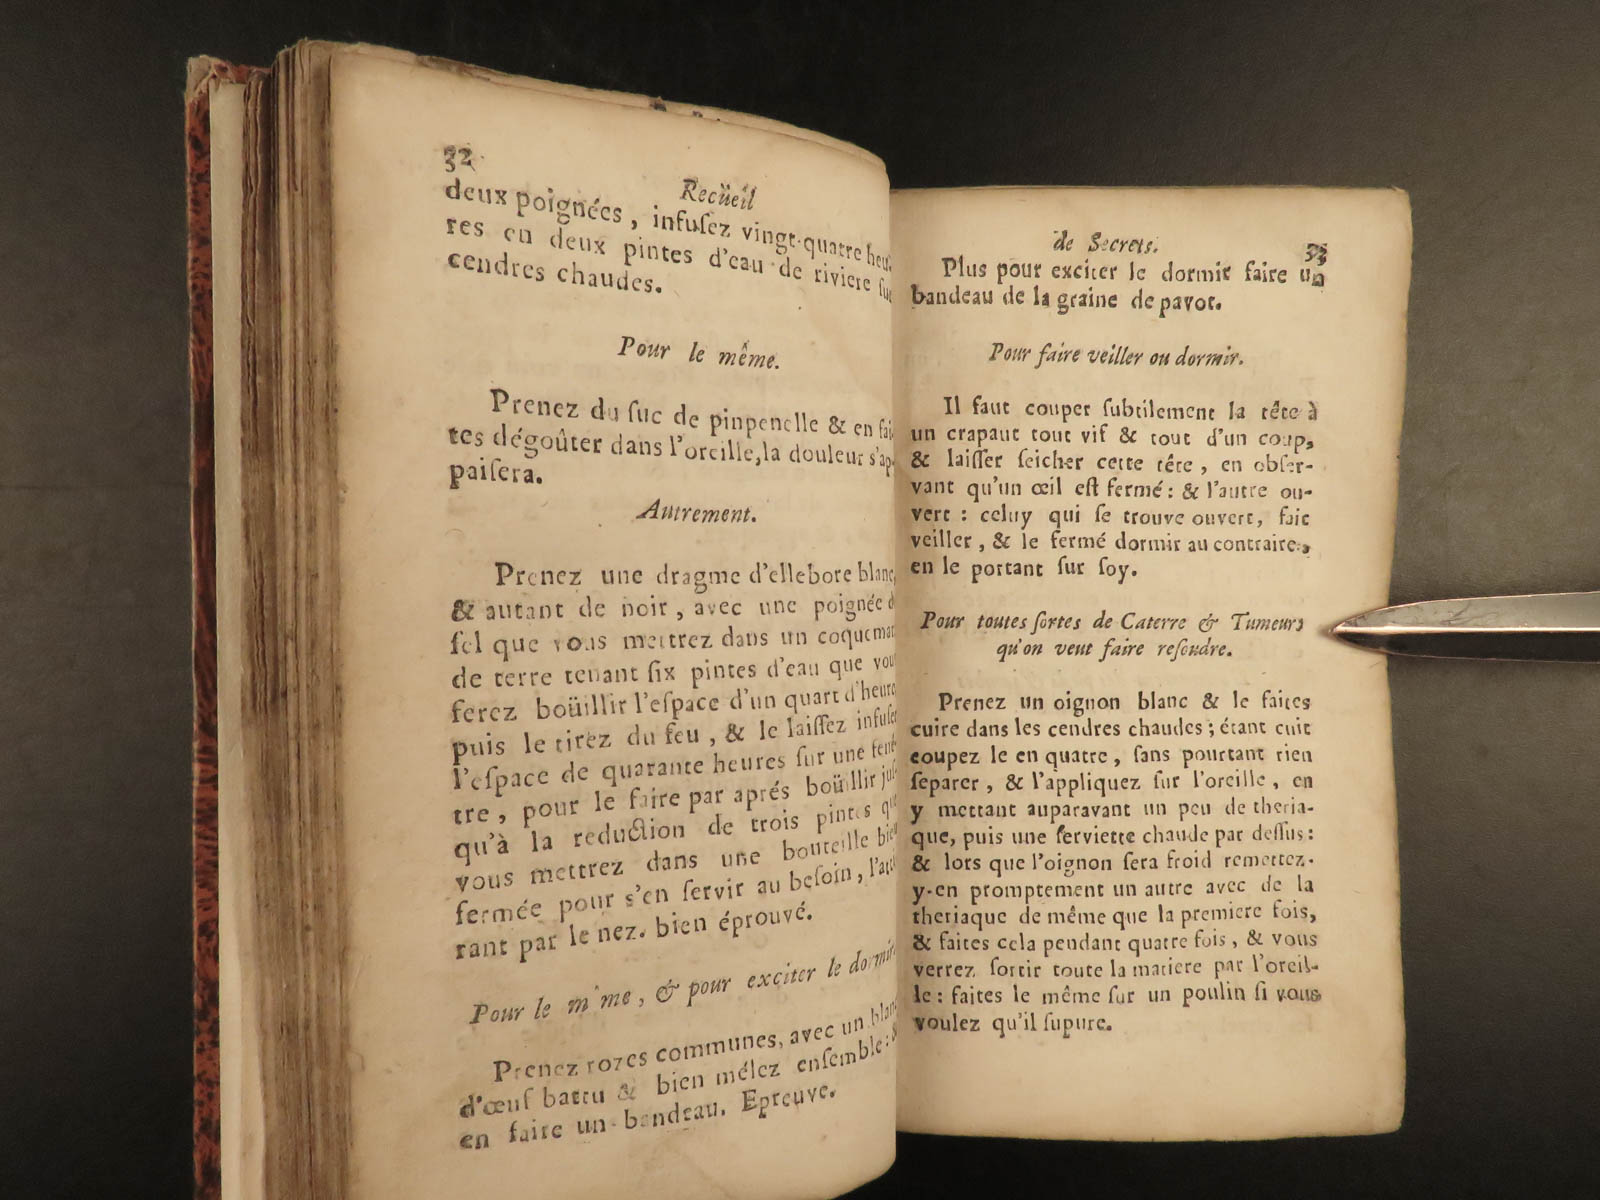 32
Recüeil
deux poignées, infuſez vingt-quatre heu-
res en deux pintes d'eau de riviere ſur
cendres chaudes.
Pour le même.
Prenez du ſuc de pinpenelle & en fai-
tes dégoûter dans l'oreille, la douleur s'ap-
paiſera.
Autrement.
Prenez une dragme d'ellebore blanc,
& autant de noir, avec une poignée de
ſel que vous mettrez dans un coquemar
de terre tenant ſix pintes d'eau que vous
ferez boüillir l'eſpace d'un quart d'heure
puis le tirez du feu, & le laiſſez infuſer
l'eſpace de quarante heures ſur une fenê-
tre, pour le faire par aprés boüillir juſ-
qu'à la reduction de trois pintes que
vous mettrez dans une bouteille bien
fermée pour s'en ſervir au beſoin, l'atti-
rant par le nez. bien éprouvé.
Pour le m me, & pour exciter le dormir.
Prenez rozes communes, avec un blanc
d'œuf battu & bien mélez enſemble: &
en faire un bandeau. Epreuve.
de Secrets.
33
Plus pour exciter le dormir faire un
bandeau de la graine de pavot.
Pour faire veiller ou dormir.
Il faut couper ſubtilement la tête à
un crapaut tout vif & tout d'un coup,
& laiſſer ſeicher cette tête, en obſer-
vant qu'un œil eſt fermé: & l'autre ou-
vert: celuy qui ſe trouve ouvert, fait
veiller, & le fermé dormir au contraire,
en le portant ſur ſoy.
Pour toutes ſortes de Caterre & Tumeurs
qu'on veut faire reſoudre.
Prenez un oignon blanc & le faites
cuire dans les cendres chaudes; étant cuit
coupez le en quatre, ſans pourtant rien
ſeparer, & l'appliquez ſur l'oreille, en
y mettant auparavant un peu de theria-
que, puis une ſerviette chaude par deſſus:
& lors que l'oignon ſera froid remettez-
y-en promptement un autre avec de la
theriaque de même que la premiere fois,
& faites cela pendant quatre fois, & vous
verrez ſortir toute la matiere par l'oreil-
le: faites le même ſur un poulin ſi vous
voulez qu'il ſupure.